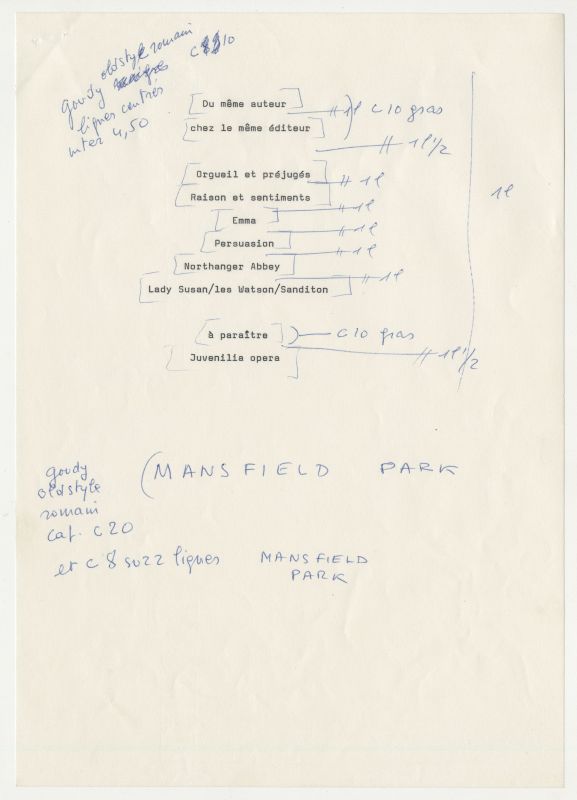 goudy oldstyle romain c 10
lignes centrés
inter 4,50
Du même auteur
# 1l c 10 gras
chez le même éditeur
# 1l 1/2
Orgueil et préjugés
# 1l
Raison et sentiments
1l
# 1l
Emma
# 1l
Persuasion
# 1l
Northanger Abbey
# 1l
Lady Susan/les Watson/Sanditon
à paraître
c 10 gras
# 1l 1/2
Juvenilia opera
goudy
oldstyle
romain
cap. c 20
MANSFIELD PARK
et c 8 su22 lignes
MANSFIELD
PARK